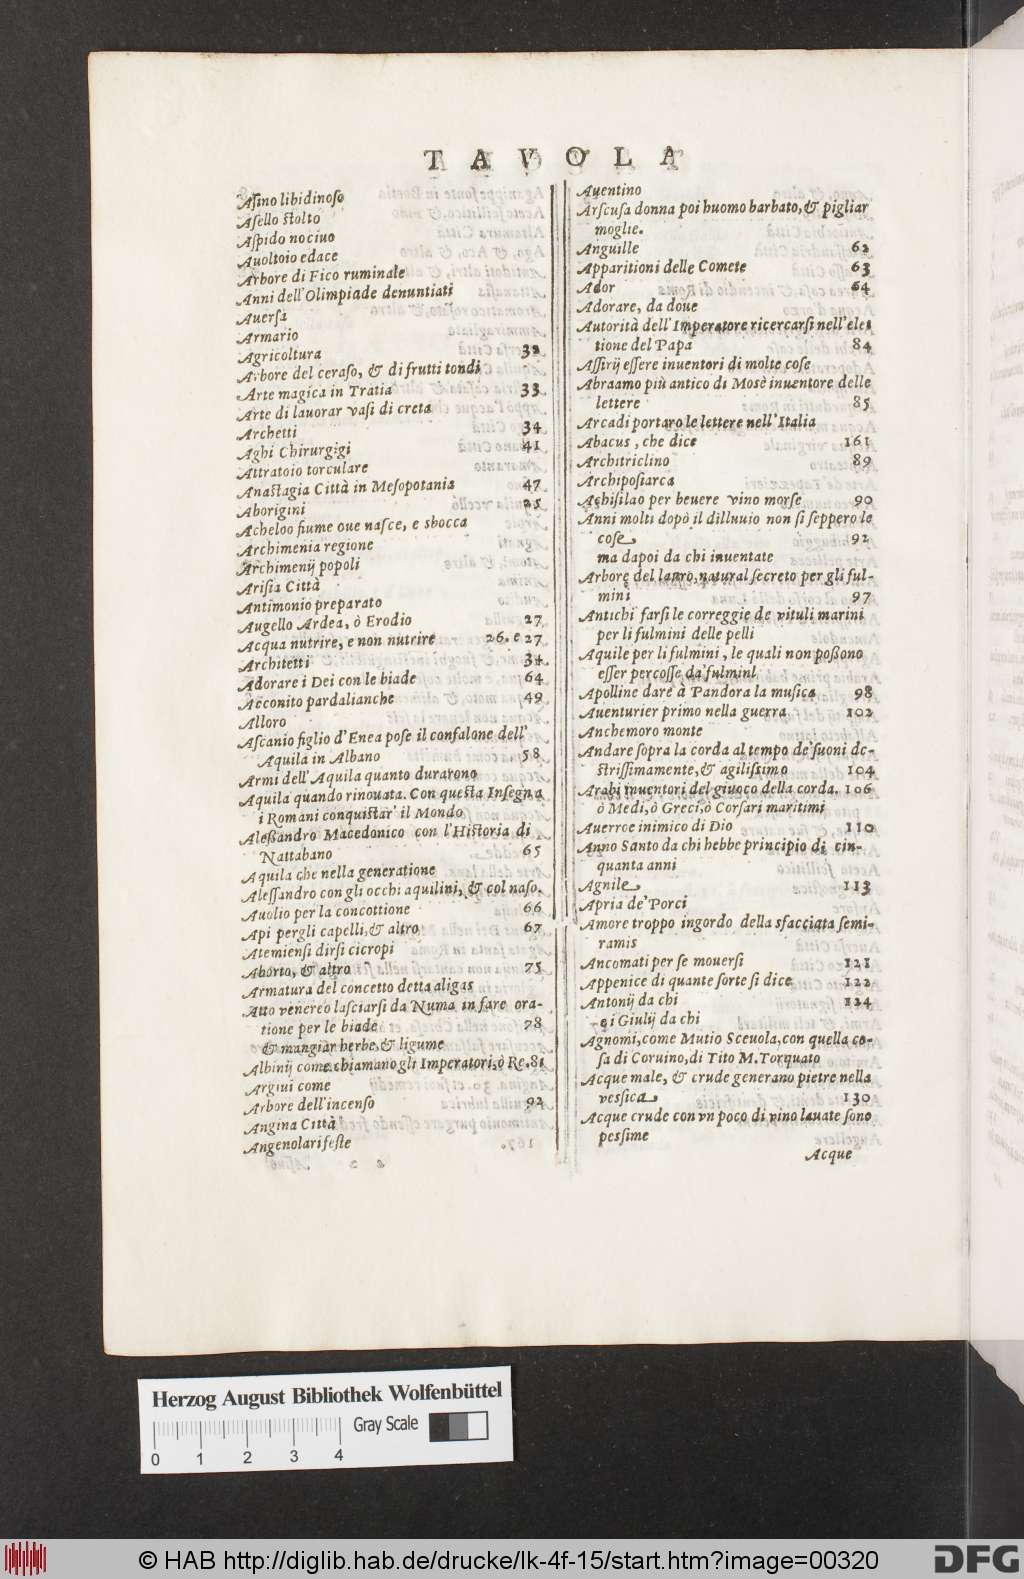 TAVOLA
Asino libidinoso
Asello stolto
Aspido nociuo
Auoltoio edace
Arbore di Fico ruminale
Anni dell'Olimpiade denuntiati
Auersa
Armario
Agricoltura 32
Arbore del ceraso, & di frutti tondi
Arte magica in Tratia 33
Arte di lauorar vasi di creta
Archetti 34
Aghi Chirurgigi 41
Attratoio torculare
Anastagia Città in Mesopotania 47
Aborigini 25
Acheloo fiume oue nasce, e sbocca
Archimenia regione
Archimenij popoli
Arisia Città
Antimonio preparato
Augello Ardea, ò Erodio 27
Acqua nutrire, e non nutrire 26. e 27
Architetti 34
Adorare i Dei con le biade 64
Acconito pardalianche 49
Alloro
Ascanio figlio d'Enea pose il confalone dell'
Aquila in Albano 58
Armi dell'Aquila quanto durarono
Aquila quando rinouata. Con questa Insegna
i Romani conquistar' il Mondo
Alessandro Macedonico con l'Historia di
Nattabano 65
Aquila che nella generatione
Alessandro con gli occhi aquilini, & col naso.
Auolio per la concottione 66
Api pergli capelli, & altro 67
Atemiensi dirsi cicropi
Aborto, & altro 75
Armatura del concetto detta aligas
Atto venereo lasciarsi da Numa in fare ora-
tione per le biade 78
& mangiar herbe, & ligume
Albinij come chiamano gli Imperatori, ò Re. 81
Argiui come
Arbore dell'incenso 92
Angina Città
Angenolari feste
Auentino
Arscusa donna poi huomo barbato, & pigliar
moglie.
Anguille 62
Apparitioni delle Comete 63
Ador 64
Adorare, da doue
Autorità dell'Imperatore ricercarsi nell'ele-
tione del Papa 84
Assirij essere inuentori di molte cose
Abraamo più antico di Mosè inuentore delle
lettere 85
Arcadi portaro le lettere nell'Italia
Abacus, che dice 161
Architriclino 89
Archiposiarca
Achisilao per beuere vino morse 90
Anni molti dopò il dilluuio non si seppero le
cose 92
ma dapoi da chi inuentate
Arbore del lauro, natural secreto per gli ful-
mini 97
Antichi farsi le correggie de vituli marini
per li fulmini delle pelli
Aquile per li fulmini, le quali non possono
esser percosse da' fulmini
Apolline dare à Pandora la musica 98
Auenturier primo nella guerra 102
Anchemoro monte
Andare sopra la corda al tempo de' suoni de-
strissimamente, & agilissimo 104
Arabi inuentori del giuoco della corda. 106
ò Medi, ò Greci, ò Corsari maritimi
Auerroe inimico di Dio 110
Anno Santo da chi hebbe principio di cin-
quanta anni
Agnile 113
Apria de' Porci
Amore troppo ingordo della sfacciata Semi-
ramis
Ancomati per se mouersi 121
Appenice di quante sorte si dice 122
Antonij da chi 124
e i Giulij da chi
Agnomi, come Mutio Sceuola, con quella co-
sa di Coruino, di Tito M. Torquato
Acque male, & crude generano pietre nella
vessica 130
Acque crude con vn poco di vino lauate sono
pessime
Acque
Herzog August Bibliothek Wolfenbüttel
Gray Scale
0 1 2 3 4
© HAB http://diglib.hab.de/drucke/lk-4f-15/start.htm?image=00320
DFG